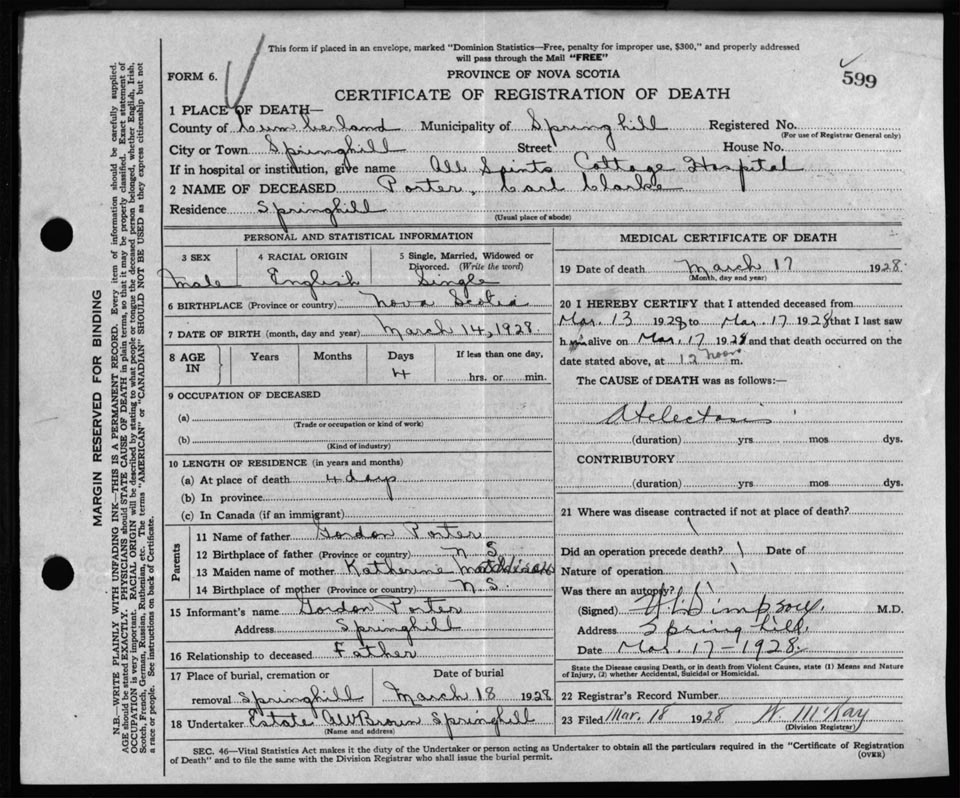 This form if placed in an envelope, marked "Dominion Statistics—Free, penalty for improper use, $300," and properly addressed
will pass through the Mail "FREE"
FORM 6.
PROVINCE OF NOVA SCOTIA
599
CERTIFICATE OF REGISTRATION OF DEATH
1 PLACE OF DEATH—
County of Cumberland Municipality of Springhill Registered No.
(For use of Registrar General only)
City or Town Springhill Street House No.
If in hospital or institution, give name All Saints Cottage Hospital
2 NAME OF DECEASED Porter, Carl Clarke
Residence Springhill
(Usual place of abode)
PERSONAL AND STATISTICAL INFORMATION
3 SEX 4 RACIAL ORIGIN 5 Single, Married, Widowed or
Divorced. (Write the word)
Male English Single
6 BIRTHPLACE (Province or country) Nova Scotia
7 DATE OF BIRTH (month, day and year) March 14, 1928.
8 AGE IN Years Months Days If less than one day,
4 hrs. or min.
9 OCCUPATION OF DECEASED
(a)
(Trade or occupation or kind of work)
(b)
(Kind of industry)
10 LENGTH OF RESIDENCE (in years and months)
(a) At place of death 4 days
(b) In province
(c) In Canada (if an immigrant)
Parents
11 Name of father Gordon Porter
12 Birthplace of father (Province or country) N.S.
13 Maiden name of mother Katherine
14 Birthplace of mother (Province or country) N.S.
15 Informant's name Gordon Porter
Address Springhill
16 Relationship to deceased Father
17 Place of burial, cremation or Date of burial
removal Springhill March 18 1928
18 Undertaker Estate AW Brown Springhill
(Name and address)
MEDICAL CERTIFICATE OF DEATH
19 Date of death March 17 1928.
(Month, day and year)
20 I HEREBY CERTIFY that I attended deceased from
Mar. 13 1928 to Mar. 17 1928 that I last saw
him alive on Mar. 17 1928 and that death occurred on the
date stated above, at 12 noon m.
The CAUSE of DEATH was as follows:—
Atelectasis
(duration) yrs mos dys.
CONTRIBUTORY
(duration) yrs mos dys.
21 Where was disease contracted if not at place of death?
Did an operation precede death? \ Date of
Nature of operation \
Was there an autopsy?
(Signed) Simpson. M.D.
Address Springhill.
Date Mar. 17-1928.
State the Disease causing Death, or in death from Violent Causes, state (1) Means and Nature
of Injury, (2) whether Accidental, Suicidal or Homicidal.
22 Registrar's Record Number
23 Filed Mar. 18 1928 W. McKay
(Division Registrar)
SEC. 46—Vital Statistics Act makes it the duty of the Undertaker or person acting as Undertaker to obtain all the particulars required in the "Certificate of Registration
of Death" and to file the same with the Division Registrar who shall issue the burial permit.
(OVER)
MARGIN RESERVED FOR BINDING
N.B.—WRITE PLAINLY WITH UNFADING INK—THIS IS A PERMANENT RECORD. Every item of information should be carefully supplied.
AGE should be stated EXACTLY. PHYSICIANS should STATE CAUSE OF DEATH in plain terms, so that it may be properly classified. Exact statement of
OCCUPATION is very important. RACIAL ORIGIN will be described by stating to what people or tongue the deceased person belonged, whether English, Irish,
Scotch, French, German, Russian, Ruthenian, etc. The terms "AMERICAN" or "CANADIAN" SHOULD NOT BE USED as they express citizenship but not
a race or people. See instructions on back of Certificate.